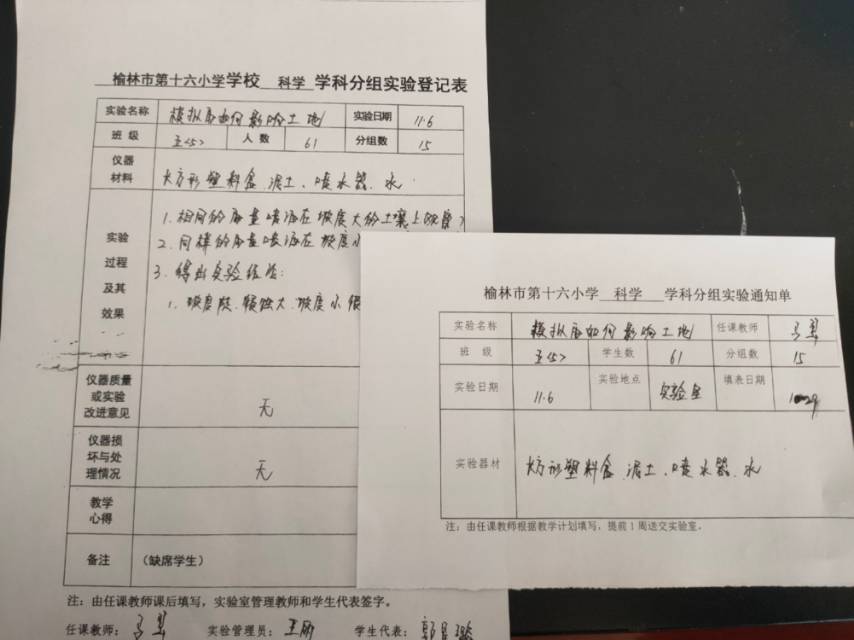 榆林市第十六小学学校 科学 学科分组实验登记表
实验名称 模拟雨如何影响土地 实验日期 11.6
班级 五<5> 人数 61 分组数 15
仪器材料 大方形塑料盒、泥土、喷水器、水
实验过程及其效果
1. 相同的雨量喷洒在坡度大的土壤上
2. 同样的雨量喷洒在坡度小
3. 得出实验结论:
1. 坡度陡、侵蚀大、坡度小
仪器质量或实验改进意见 无
仪器损坏与处理情况 无
教学心得
备注 (缺席学生)
注:由任课教师课后填写,实验室管理教师和学生代表签字。
任课教师: 实验管理员: 学生代表:
榆林市第十六小学 科学 学科分组实验通知单
实验名称 模拟雨如何影响土地 任课教师
班级 五<5> 学生数 61 分组数 15
实验日期 11.6 实验地点 实验室 填表日期
实验器材 大方形塑料盒、泥土、喷水器、水
注:由任课教师根据教学计划填写,提前1周送交实验室。